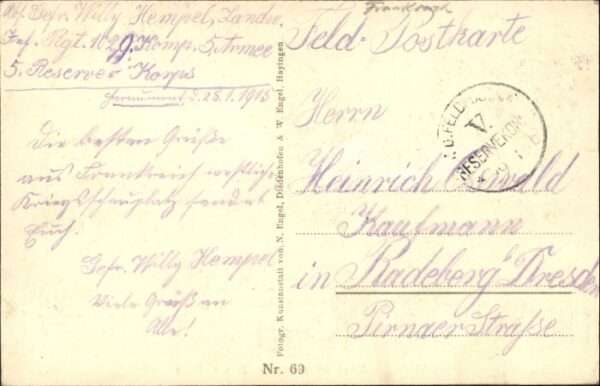 Abs. Gefr. Willy Hempel, Landw.
Inf. Rgt. 102 9. Komp. 5. Armee
5. Reserve Korps
d. 28.1.1915
Die besten Grüße
aus Frankreich westlicher
Kriegsschauplatz sendet
Euch.
Gefr. Willy Hempel
Viele Grüße an
Alle!
Photogr. Kunstanstalt von N. Engel, Diedenhofen & W. Engel, Hayingen
Nr. 69
Frankreich
Feld-Postkarte
Herrn
Heinrich
Kaufmann
in Radeberg b. Dresden
Pirnaer Straße
V.
RESERVEKORPS